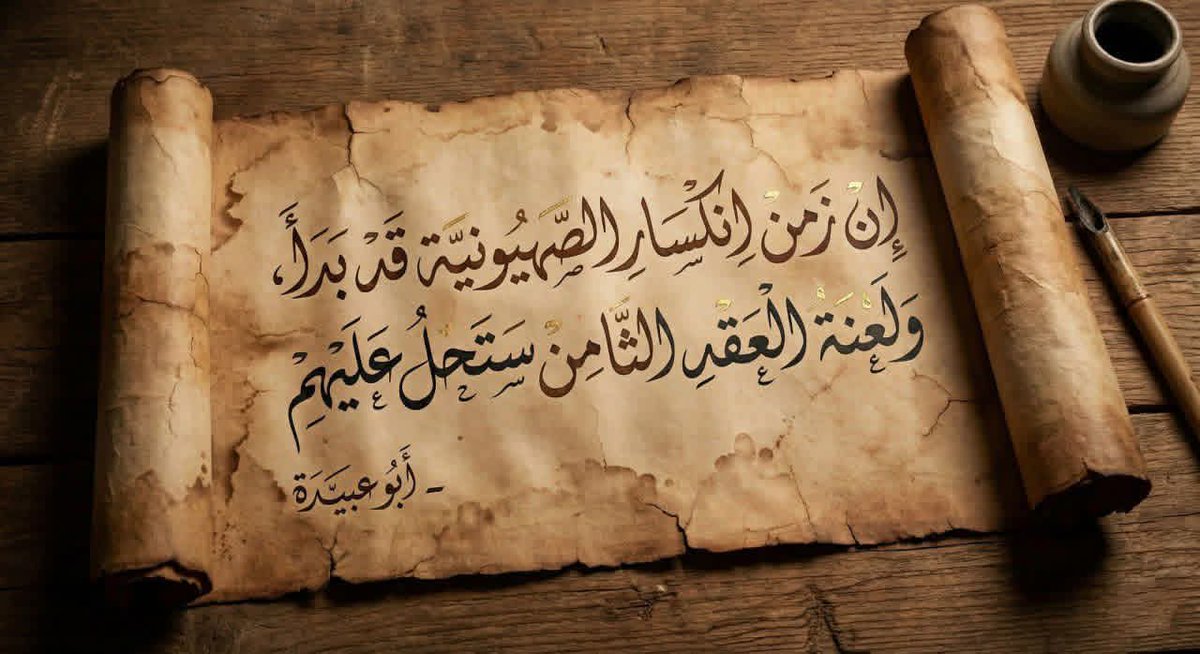 إِنْ زَمَنْ اِنْكَسَارِ الصَّهِيُونِيَّة قَدْ بَدَأَ،
وَلَعْنَةْ الْعَقْدِ الثَّامِنْ سَتَحِلُ عَلَيْهِمْ
- أَبُو عبيَّدَة